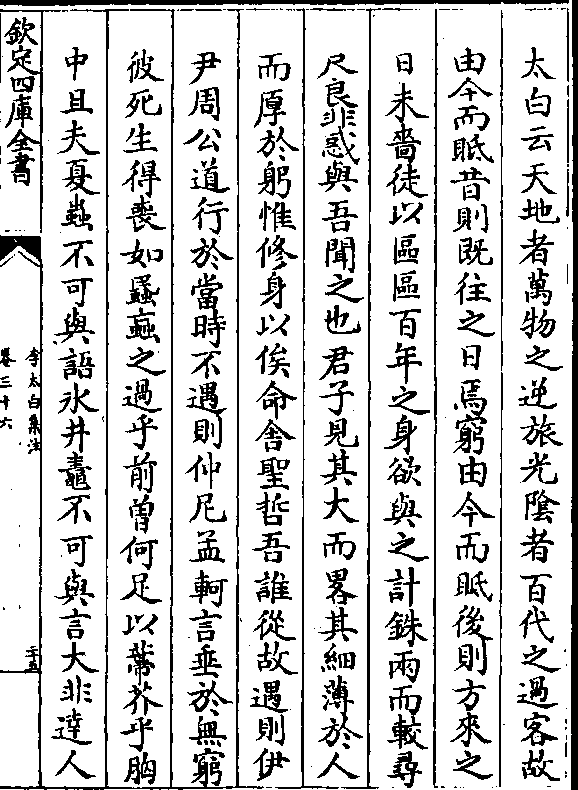 太白云天地者萬物之逆旅光隂者百代之過客故
由今而眂昔則既往之日焉窮由今而眂後則方來之
日未嗇徒以區區百年之身欲與之計銖兩而較尋
尺良非惑與吾聞之也君子見其大而畧其細薄於人
而厚於躬惟修身以俟命舍聖哲吾誰從故遇則伊
尹周公道行於當時不遇則仲尼孟軻言垂於無窮
彼死生得喪如蟁蝱之過乎前曽何足以蔕芥乎胸
中且夫夏蟲不可與語氷井鼃不可與言大非達人
欽定四庫全書
李太白集注
卷三十六
三五